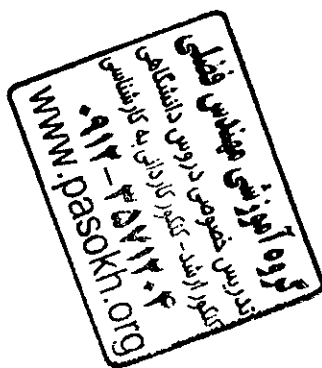 گروه آموزشی مهندس فضلی
تدریس خصوصی دروس دانشگاهی
کنکور ارشد - کنکور کاردانی به کارشناسی
۰۹۱۲ - ۳۵۷۱۲۰۴
www.pasokh.org